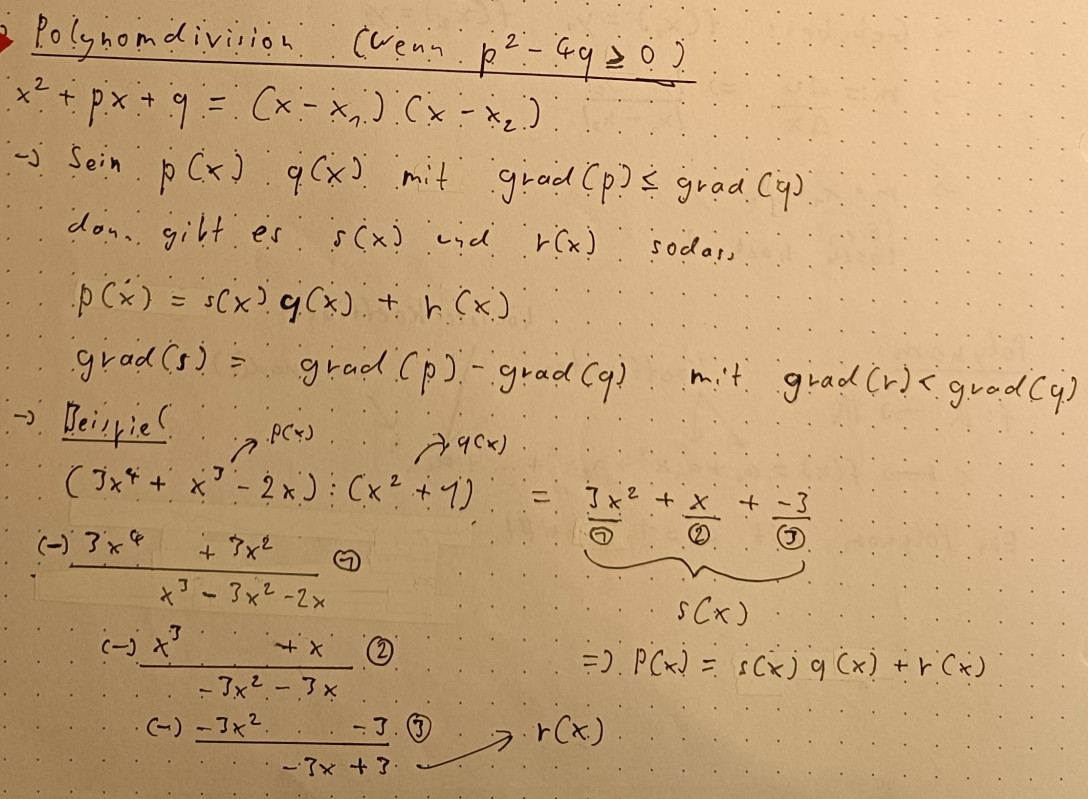 Polynomdivision (Wenn p² - 4q ≥ 0)
x² + px + q = (x - x₁) (x - x₂)
→ Sein p(x) q(x) mit grad(p) ≤ grad(q)
dann gibt es s(x) und r(x) sodass
p(x) = s(x) q(x) + r(x)
grad(s) = grad(p) - grad(q) mit grad(r) < grad(q)
→ Beispiel
p(x) q(x)
(3x⁴ + x³ - 2x) : (x² + 1) = 3x² + x + -3
① ② ③
(-) 3x⁴ + 3x² ①
x³ - 3x² - 2x
s(x)
(-) x³ + x ②
=> p(x) = s(x) q(x) + r(x)
-3x² - 3x
(-) -3x² -3 ③
-3x + 3 → r(x)